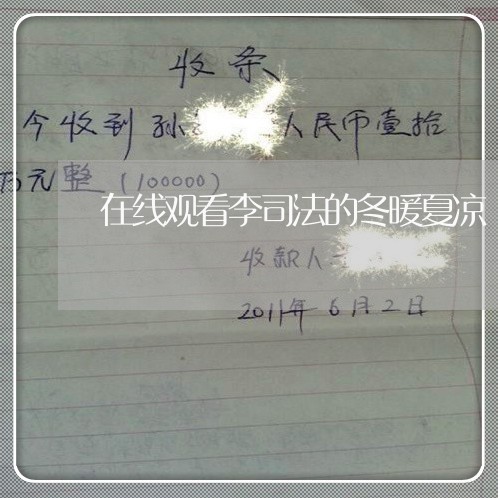 收条
今收到孙 人民币壹拾
万元整（100000）
在线观看李司法的冬暖夏凉
收款人
2011年6月2日